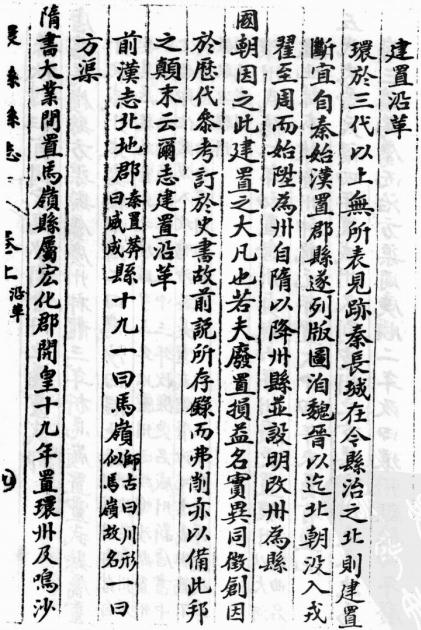 建置沿革
環於三代以上無所表見跡秦長城在今縣治之北則建置
斷宜自秦始漢置郡縣遂列版圖洎魏晉以迄北朝沒入戎
翟至周而始陞為州自隋以降州縣並設明改州為縣
國朝因之此建置之大凡也若夫廢置損益名實異同徵創因
於歷代叅考訂於史書故前說所存錄而弗削亦以備此邦
之顛末云爾志建置沿革
前漢志北地郡秦置莽曰威成縣十九一曰馬嶺師古曰川形似馬嶺故名一曰
方渠
隋書大業間置馬嶺縣屬宏化郡開皇十九年置環州及鳴沙
環縣縣志 卷上 沿革